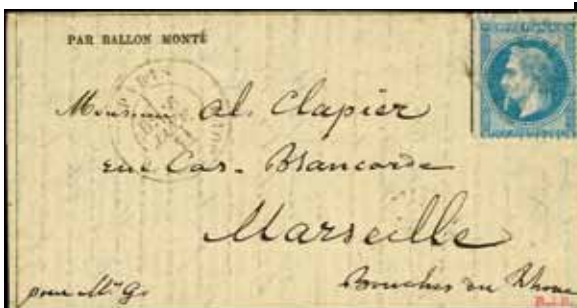 PAR BALLON MONTÉ
Monsieur Al. Clapier
rue Cas. Blancarde
Marseille
Bouches du Rhône
pour Mr
PARIS